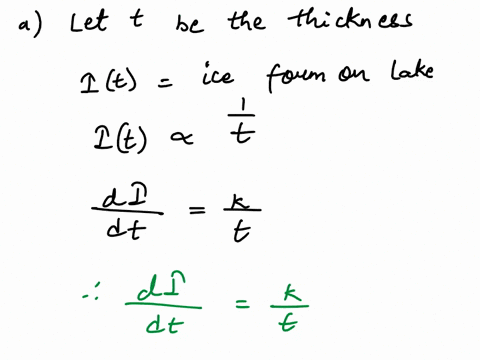 a) Let t be the thickness
I(t) = ice foum on lake
I(t) ∝ 1/t
dI/dt = k/t
∴ dI/dt = k/t